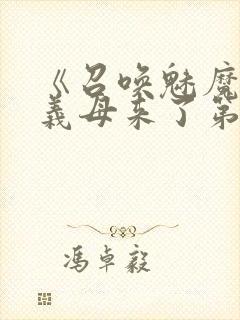 《召唤魅魔
義母来了第
冯卓毅